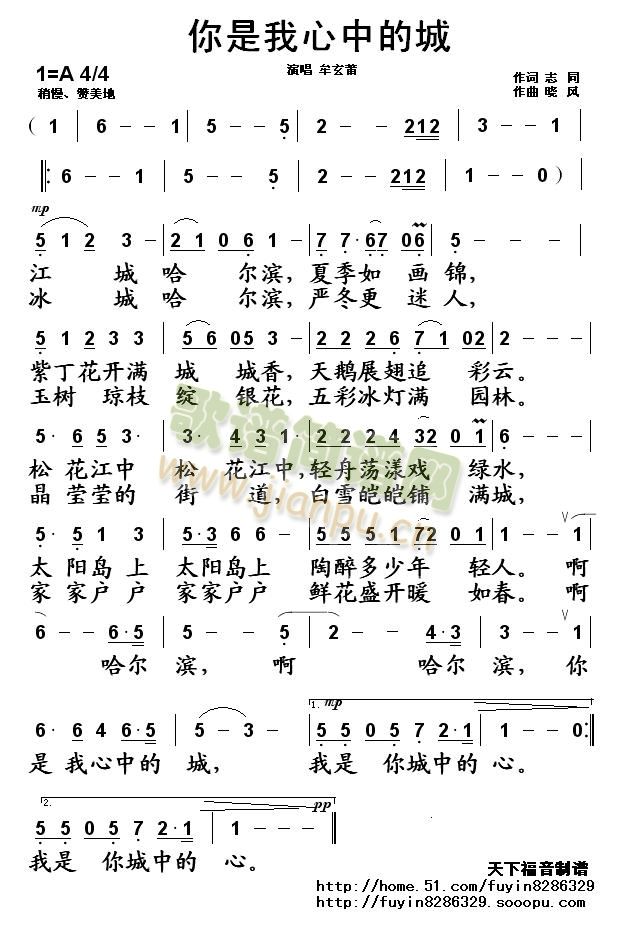 你是我心中的城
1=A 4/4
演唱 牟玄莆
作词 志 同
稍慢、赞美地
作曲 晓 风
( 1 | 6 - - 1 | 5 - - 5 | 2 - - 212 | 3 - - 1 |
|: 6 - - 1 | 5 - - 5 | 2 - - 212 | 1 - - 0 )
mp
5 1 2 3 - | 2 1 0 6 1 | 7 7· 67 06 | 5 - - - |
江 城 哈 尔滨，夏季如 画锦，
冰 城 哈 尔滨，严冬更 迷人，
5 1 2 3 3 | 56 05 3 | 2 2 2 6 7 1 02 | 2 - - - |
紫丁花开满 城 城香，天鹅展翅追 彩云。
玉树 琼枝 绽 银花，五彩冰灯满 园林。
5· 6 5 3· | 3· 4 3 1· | 2 2 2 4 32 0 1 | 6 - - - |
松 花江中 松 花江中，轻舟荡漾戏 绿水，
晶 莹莹的 街 道，白雪皑皑铺 满城，
5· 5 1 3 | 5·3 6 6 | 5 5 5 1 72 0 1 | 1 - - 1 |
太 阳岛上 太阳岛上 陶醉多少年 轻人。啊
家 家户户 家家户户 鲜花盛开暖 如春。啊
6 - - 6·5 | 5 - - 5 | 2 - - 4·3 | 3 - - 1 |
哈尔 滨， 啊 哈尔 滨，你
1. mp
6· 6 4 6·5 | 5 - 3 - | 5 5 0 5 7 2·1 | 1 - - 0 :|
是 我心中的 城， 我是 你城中的 心。
2. pp
5 5 0 5 7 2·1 | 1 - - - |
我是 你城中的 心。
歌谱简谱网
www.jianpu.cn
天下福音制谱
http://home.51.com/fuyin8286329
http://fuyin8286329.sooopu.com